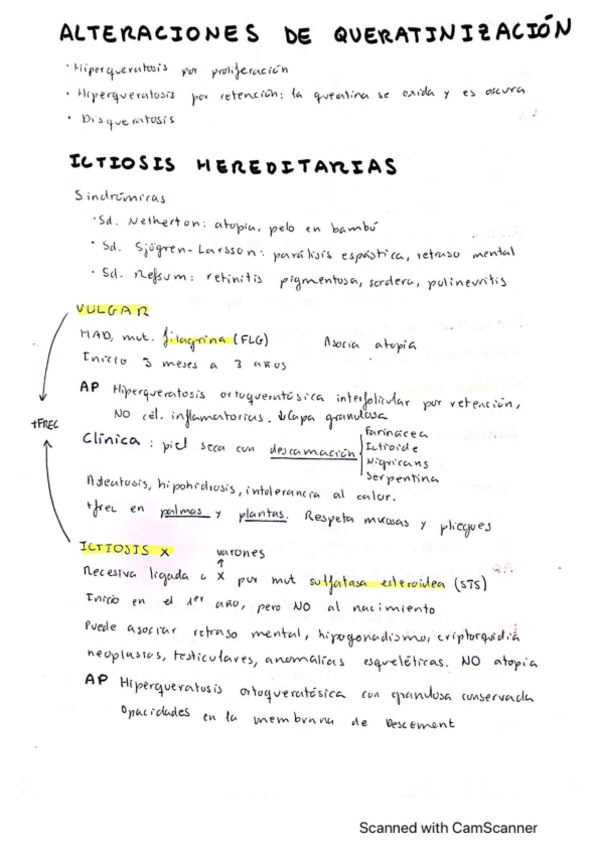 ALTERACIONES DE QUERATINIZACIÓN
· Hiperqueratosis por proliferación
· Hiperqueratosis por retención: la queratina se oxida y es oscura
· Disqueratosis
ICTIOSIS HEREDITARIAS
Sindrómicas
· Sd. Netherton: atopia, pelo en bambú
· Sd. Sjögren-Larsson: parálisis espástica, retraso mental
· Sd. Refsum: retinitis pigmentosa, sordera, polineuritis
VULGAR
HAD, mut. filagrina (FLG) Asocia atopia
Inicio 3 meses a 3 años
AP Hiperqueratosis ortoqueratósica interfolicular por retención,
NO cél. inflamatorias. ↓Capa granulosa
+FREC
Clínica: piel seca con descamación
Farinácea
Ictioide
Nigricans
Serpentina
Asteatosis, hipohidrosis, intolerancia al calor.
+frec en palmas y plantas. Respeta mucosas y pliegues
ICTIOSIS X varones
Recesiva ligada a X por mut sulfatasa esteroidea (STS)
Inicio en el 1er año, pero NO al nacimiento
Puede asociar retraso mental, hipogonadismo, criptorquidia
neoplasias, testiculares, anomalías esqueléticas. NO atopia
AP Hiperqueratosis ortoqueratósica con granulosa conservada
Opacidades en la membrana de Descement
Scanned with CamScanner